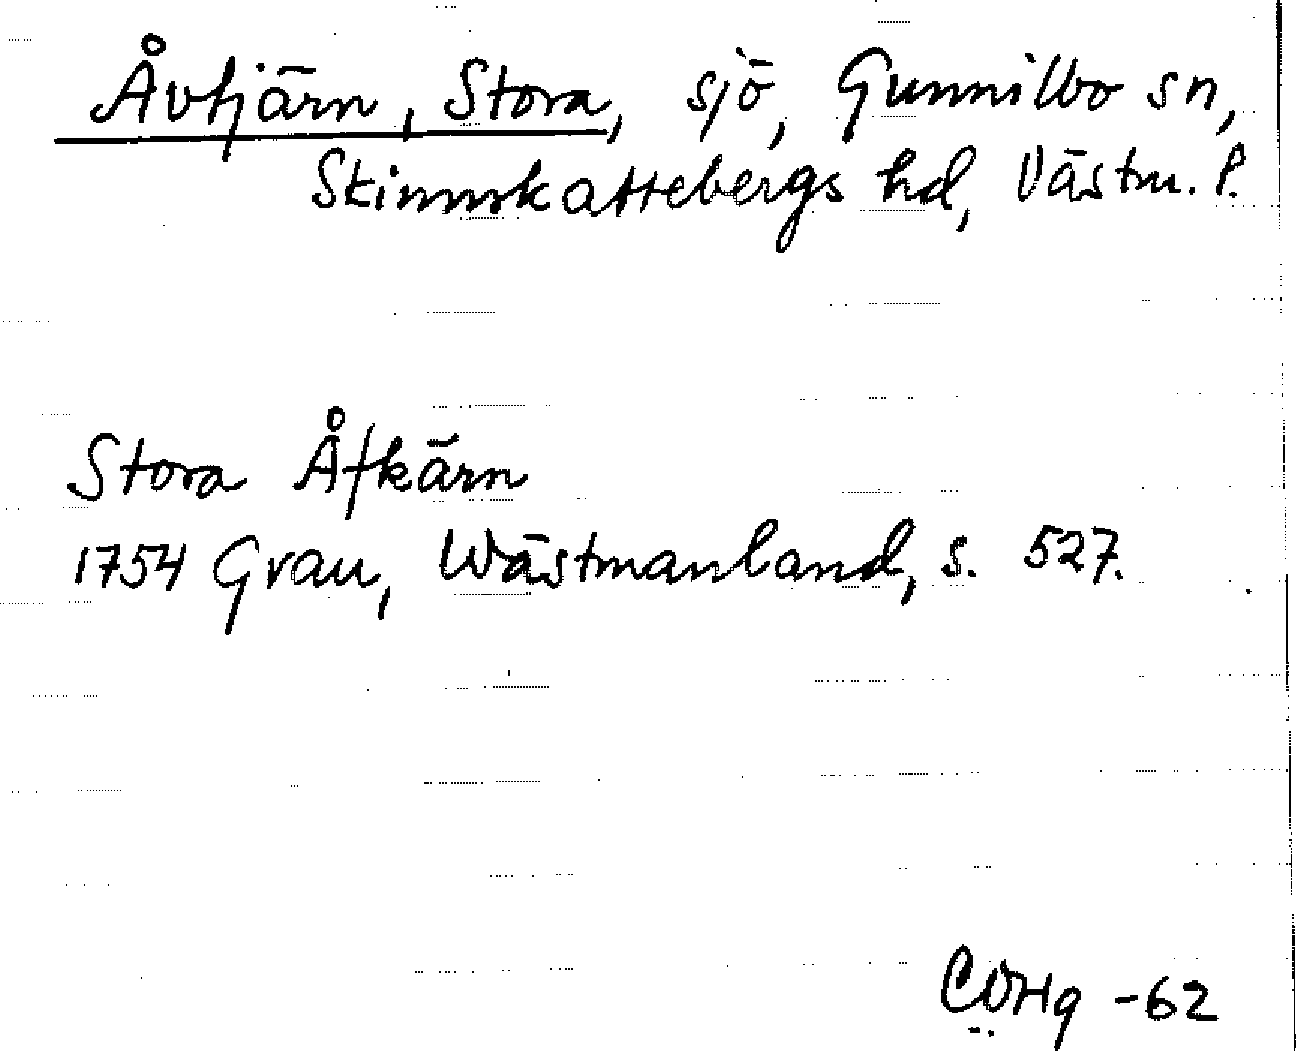 Åvtjärn, Stora, sjö, Gunnilbo sn,
Skinnskattebergs hd, Västm. l.
Stora Åfkärn
1754 Grau, Wästmanland, s. 527.
CÖHg -62